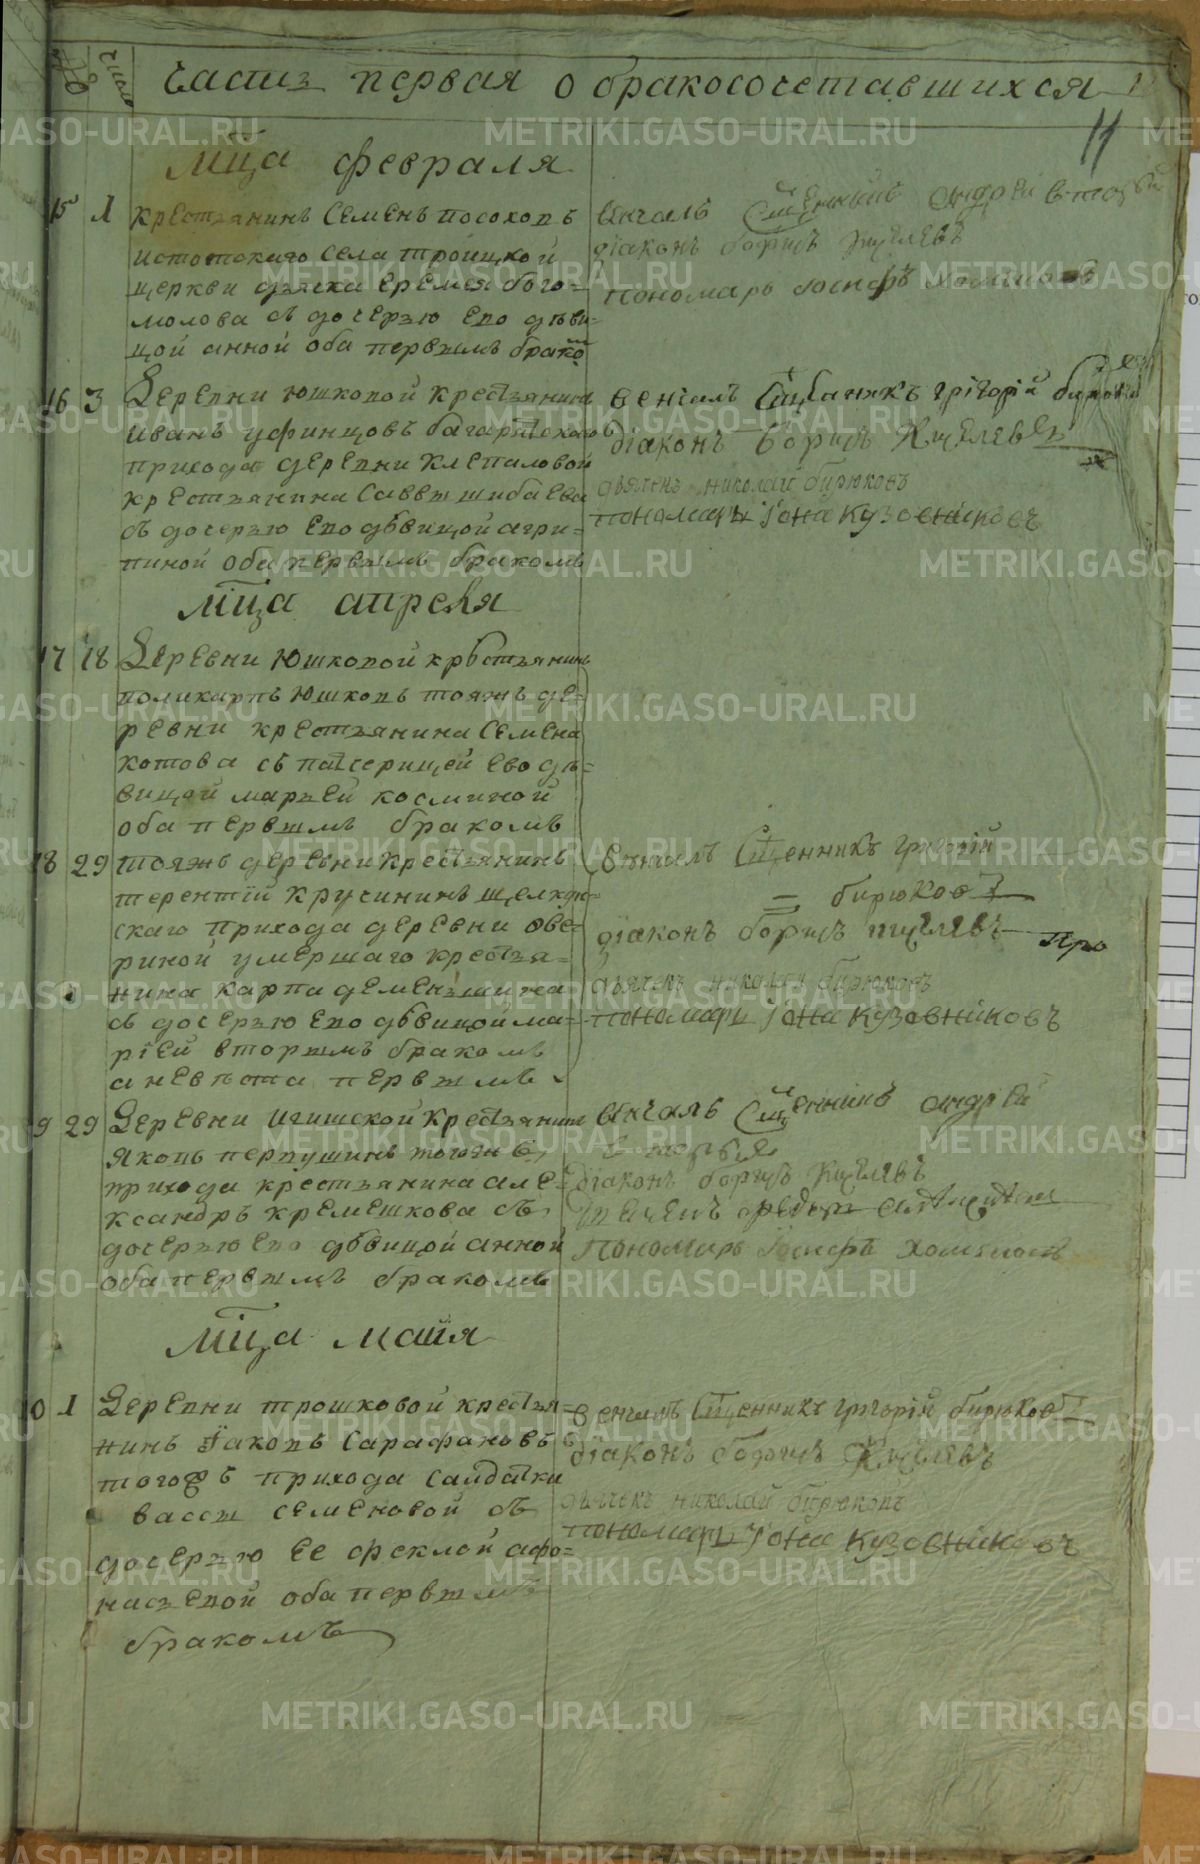 Часть первая о бракосочетавшихся
11
число
Мца февраля
15 1 крестьянинъ Семенъ посоховъ
истотскаго села троицкой
церкви дьячка Еремея бого=
молова съ дочерью Ево дѣви=
цой анной оба первымъ бракомъ
вѣнчалъ Сщенникъ андрей
дiаконъ борисъ
пономарь Iосифъ
16 3 Деревни юшковой крестьянинъ
иванъ уфинцовъ багаряцкаго
прихода деревни клепаловой
крестьянина Саввы шибаева
съ дочерью Ево дѣвицой агри=
пиной оба первымъ бракомъ
венчалъ григорiй бирюковъ
дiаконъ борисъ
дьячекъ николай бирюковъ
пономарь Iона кузовниковъ
Мца апреля
17 18 Деревни Юшковой крестьянинъ
поликарпъ Юшковъ тояжъ де=
ревни крестьянина Семена
котова съ патчерицей Ево дѣ=
вицой марьей косминой
оба первымъ бракомъ
18 29 тояжъ деревни крестьянинъ
терентiй кручининъ щелкун=
скаго прихода деревни аве=
риной умершаго крестья=
нина карпа деменьшина
съ дочерью Ево дѣвицой ма=
рiей вторымъ бракомъ
а невѣста первымъ
вѣнчалъ Сщенникъ григорiй
= бирюковъ
дiаконъ борисъ
дьячекъ николай бирюковъ
пономарь Iона кузовниковъ
9 29 Деревни игишской крестьянинъ
яковъ перпушинъ тогожъ
прихода крестьянина але=
ксандръ кремешкова съ
дочерью Ево дѣвицой анной
оба первымъ бракомъ
вѣнчалъ Сщенникъ андрей
дiаконъ борисъ
пономарь Iосифъ
Мца майя
10 1 Деревни трошковой крестья=
нинъ Iаковъ Сарафановъ
тогожъ прихода салдатки
вассы семеновой съ
дочерью ее феклой афо=
насьевой оба первымъ
бракомъ
венчалъ Сщенникъ григорiй бирюковъ
дiаконъ борисъ
дьячекъ николай бирюковъ
пономарь Iона кузовниковъ
METRIKI.GASO-URAL.RU